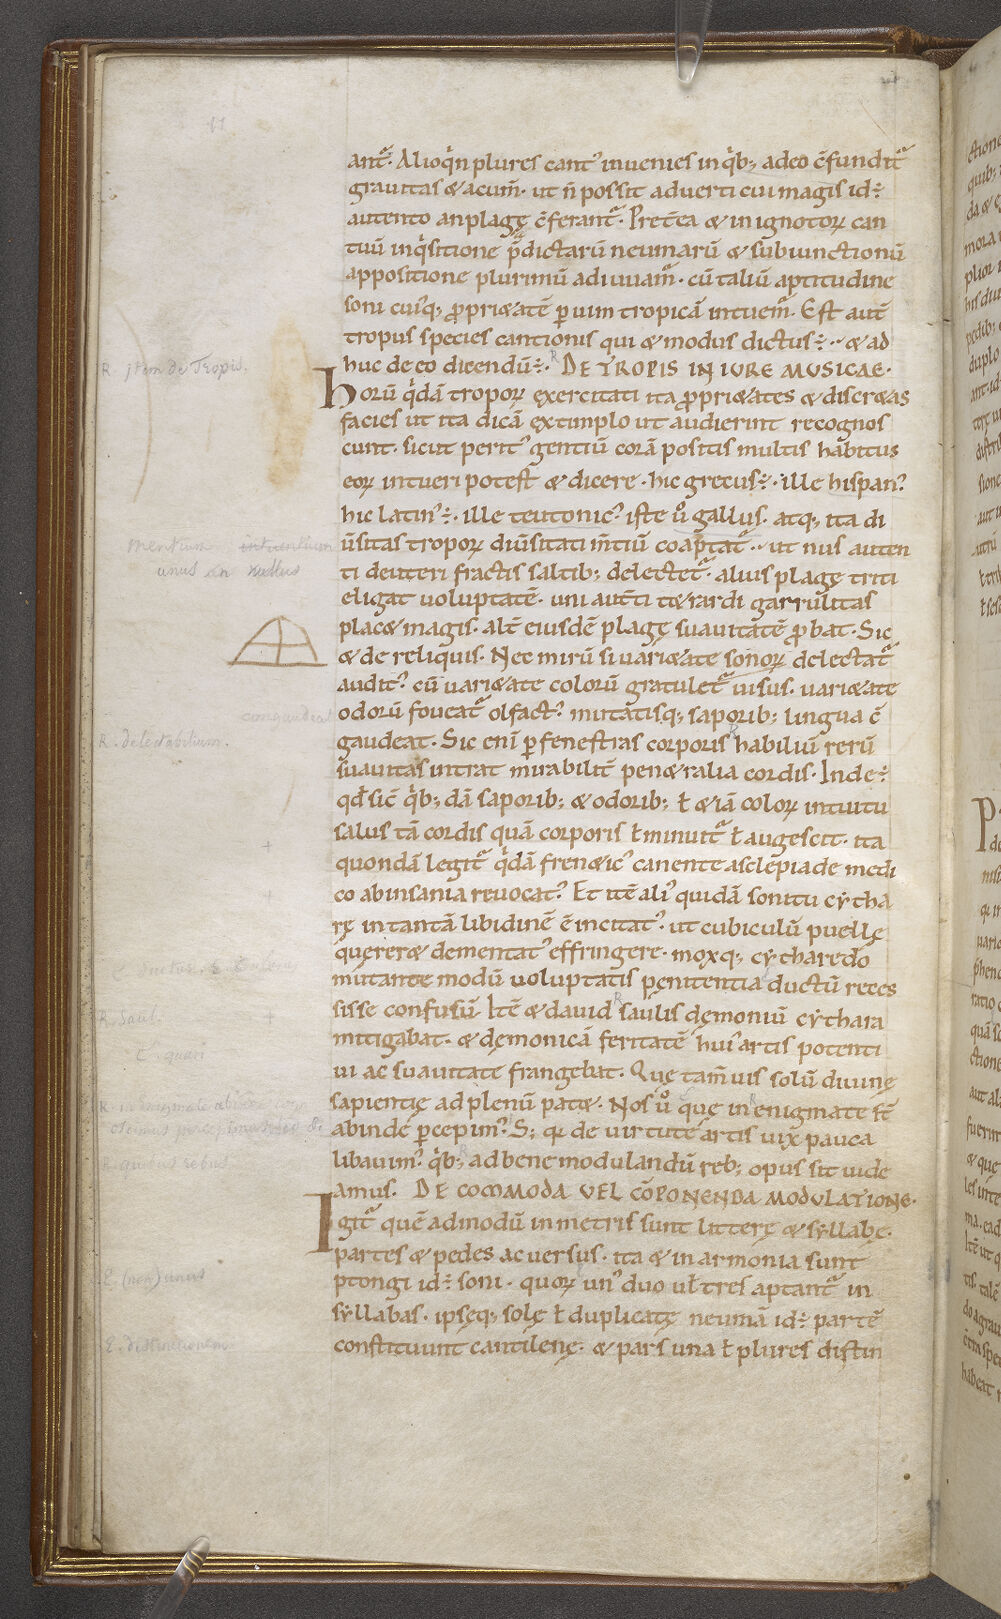 antᷓ. Alioqͥn plures cantꝰ invenies in qͥb; adeo c̄funditᷓ
gravitas & acum̄. ut n̄ possit adverti cui magis id÷
autento an plagę c̄ferantᷓ. Pret̄ea & in ignotoꝝ can
tuū inqͥsitione p̄dictarū neumarū & subiunctionū
appositione plurimū adiuvamᷓ. cū taliū aptitudine
soni cuiꝰq; ꝓpri&atē ꝑ vim tropicā intuemᷓ. Est autē
tropus species cantionis qui & modus dictus÷ & ad
huc de eo dicendū÷. DE TROPIS IN IURE MUSICAE.
Horū qͥdā tropoꝝ exercitati ita ꝓpri&ates & discr&as
facies ut ita dicā extimplo ut audierint recognos
cunt. sicut peritꝰ gentiū corā positis multis habitus
eoꝝ intueri potest & dicere. hic grecus÷. ille hispanꝰ
hic latinꝰ÷. ille teutonicꝰ iste uͦ gallus. atq; ita di
ūsitas tropoꝝ diūsitati m̄tiū coaptatᷓ. ut nus auten
ti deuteri fractis saltib; delectetᷓ. alius plagę triti
eligat voluptatē. uni aut̄ti t&rardi garrulitas
plac& magis. alt̄ eiusdē plagę suavitatē ꝓbat. Sic
& de reliquis. Nec mirū si vari&ate sonoꝝ delectatᷓ
auditꝰ cū vari&ate colorū gratuletᷓ visus. vari&ate
odorū foveatᷓ olfactꝰ mutatisq; saporib; lingua c̄
gaudeat. Sic enī ꝑ fenestras corporis habiliū rerū
suavitas intrat mirabilit̄ pen&ralia cordis. Inde÷
qd̄ sic̄ qͥb; dā saporib; & odorib; ł &iā coloꝝ intuitu
salus tā cordis quā corporis ł minuitᷓ ł augescit. ita
quondā legitᷓ qͥdā fren&icꝰ canente asclepiade medi
co ab insania revocatꝰ Et itē aliꝰ quidā sonitu cytha
rę in tantā libidinē ē incitatꝰ. ut cubiculū puellę
querer& dementatꝰ effringere. moxq; cytharedo
mutante modū voluptatis pęnitentia ductū reces
sisse confusū Itē & david saulis dęmoniū cythara
mitigabat. & dęmonicā feritatē huiꝰ artis potenti
vi ac suavitate frangebat. Quę tam̄ vis solū divinę
sapientię ad plenū pat&. Nos uͦ que in enigmate st̄
ab inde ꝑcepimꝰ. S; qͣ de virtute artis vix pauca
libavimꝰ qͥb; ad bene modulandū reb; opus sit vide
amus. DE COMMODA VEL CŌPONENDA MODULATIONE.
Igitᷓ quē admodū in metris sunt litterę & syllabę.
partes & pedes ac versus. ita & in armonia sunt
ptongi id÷ soni. quoꝝ unꝰ duo vel tres aptantᷓ in
syllabas. ipsęq; solę ł duplicatę neumā id÷ partē
constituunt cantilenę. & pars una ł plures distin
R. item de Tropis.
mentium intuentium
unus an nullus
congaudeat
R. delectabilium.
R. Saul.
E. quasi
R. quibus rebus
E. (non) unus
E. distinctionem